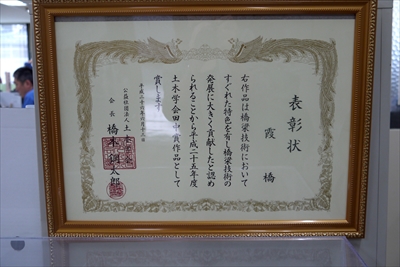 表彰状
霞橋
右作品は橋梁技術において
すぐれた特色を有し橋梁技術の
発展に大きく貢献したと認め
られることから平成二十五年度
土木学会田中賞作品として
賞します
公益社団法人 土木学会
会長 橋本鋼太郎